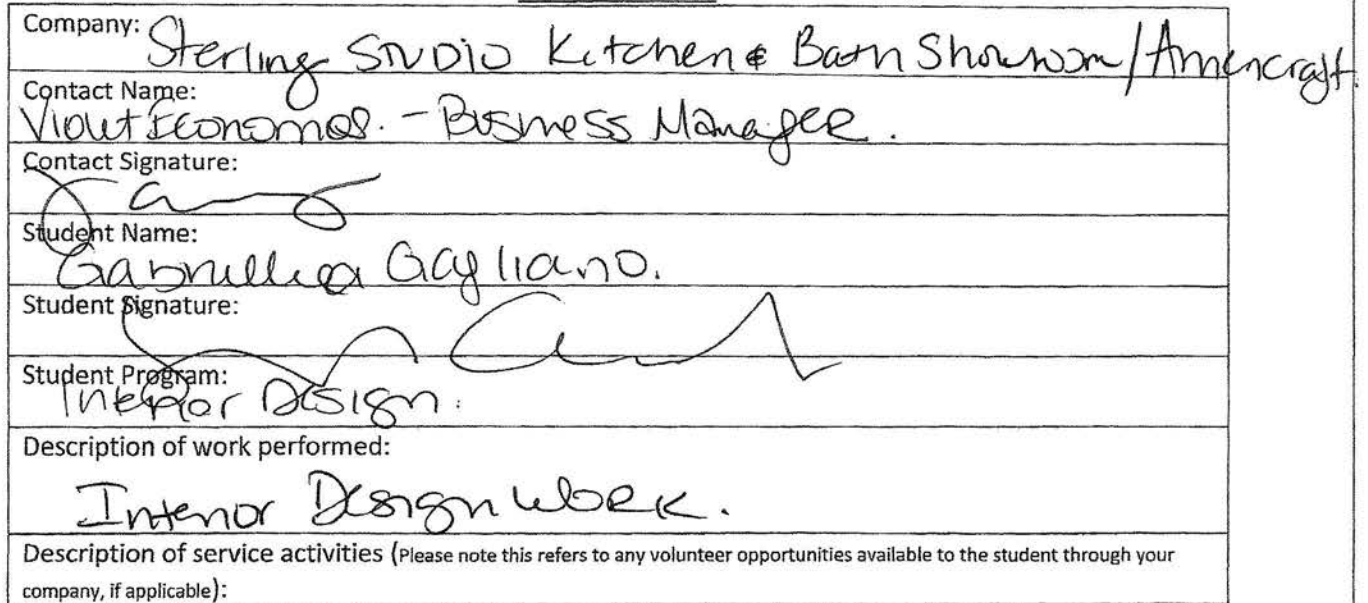 Company: Sterling STUDIO Kitchen & Bath Showroom/Americraft.
Contact Name:
Violet Economos. - Business Manager.
Contact Signature:
Student Name:
Gabriella Gagliano.
Student Signature:
Student Program:
Interior Design.
Description of work performed:
Interior Design Work.
Description of service activities (Please note this refers to any volunteer opportunities available to the student through your
company, if applicable):